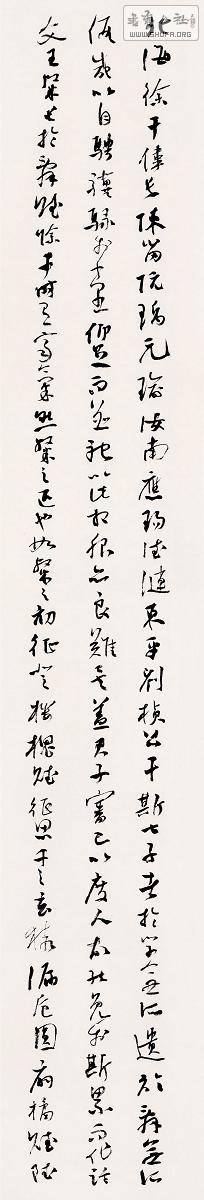 北海徐干偉長陳留阮瑀元瑜汝南應瑒德璉東平劉楨公干斯七子者於學無所遺於辭無所
假咸以自騁驥騄於千里仰齊足而並馳以此相服亦良難矣蓋君子審己以度人故能免於斯累而作論
文王粲長於辭賦徐干時有齊氣然粲之匹也如粲之初征登樓槐賦征思干之玄猿漏卮圓扇橘賦雖
WWW.SHUFA.ORG